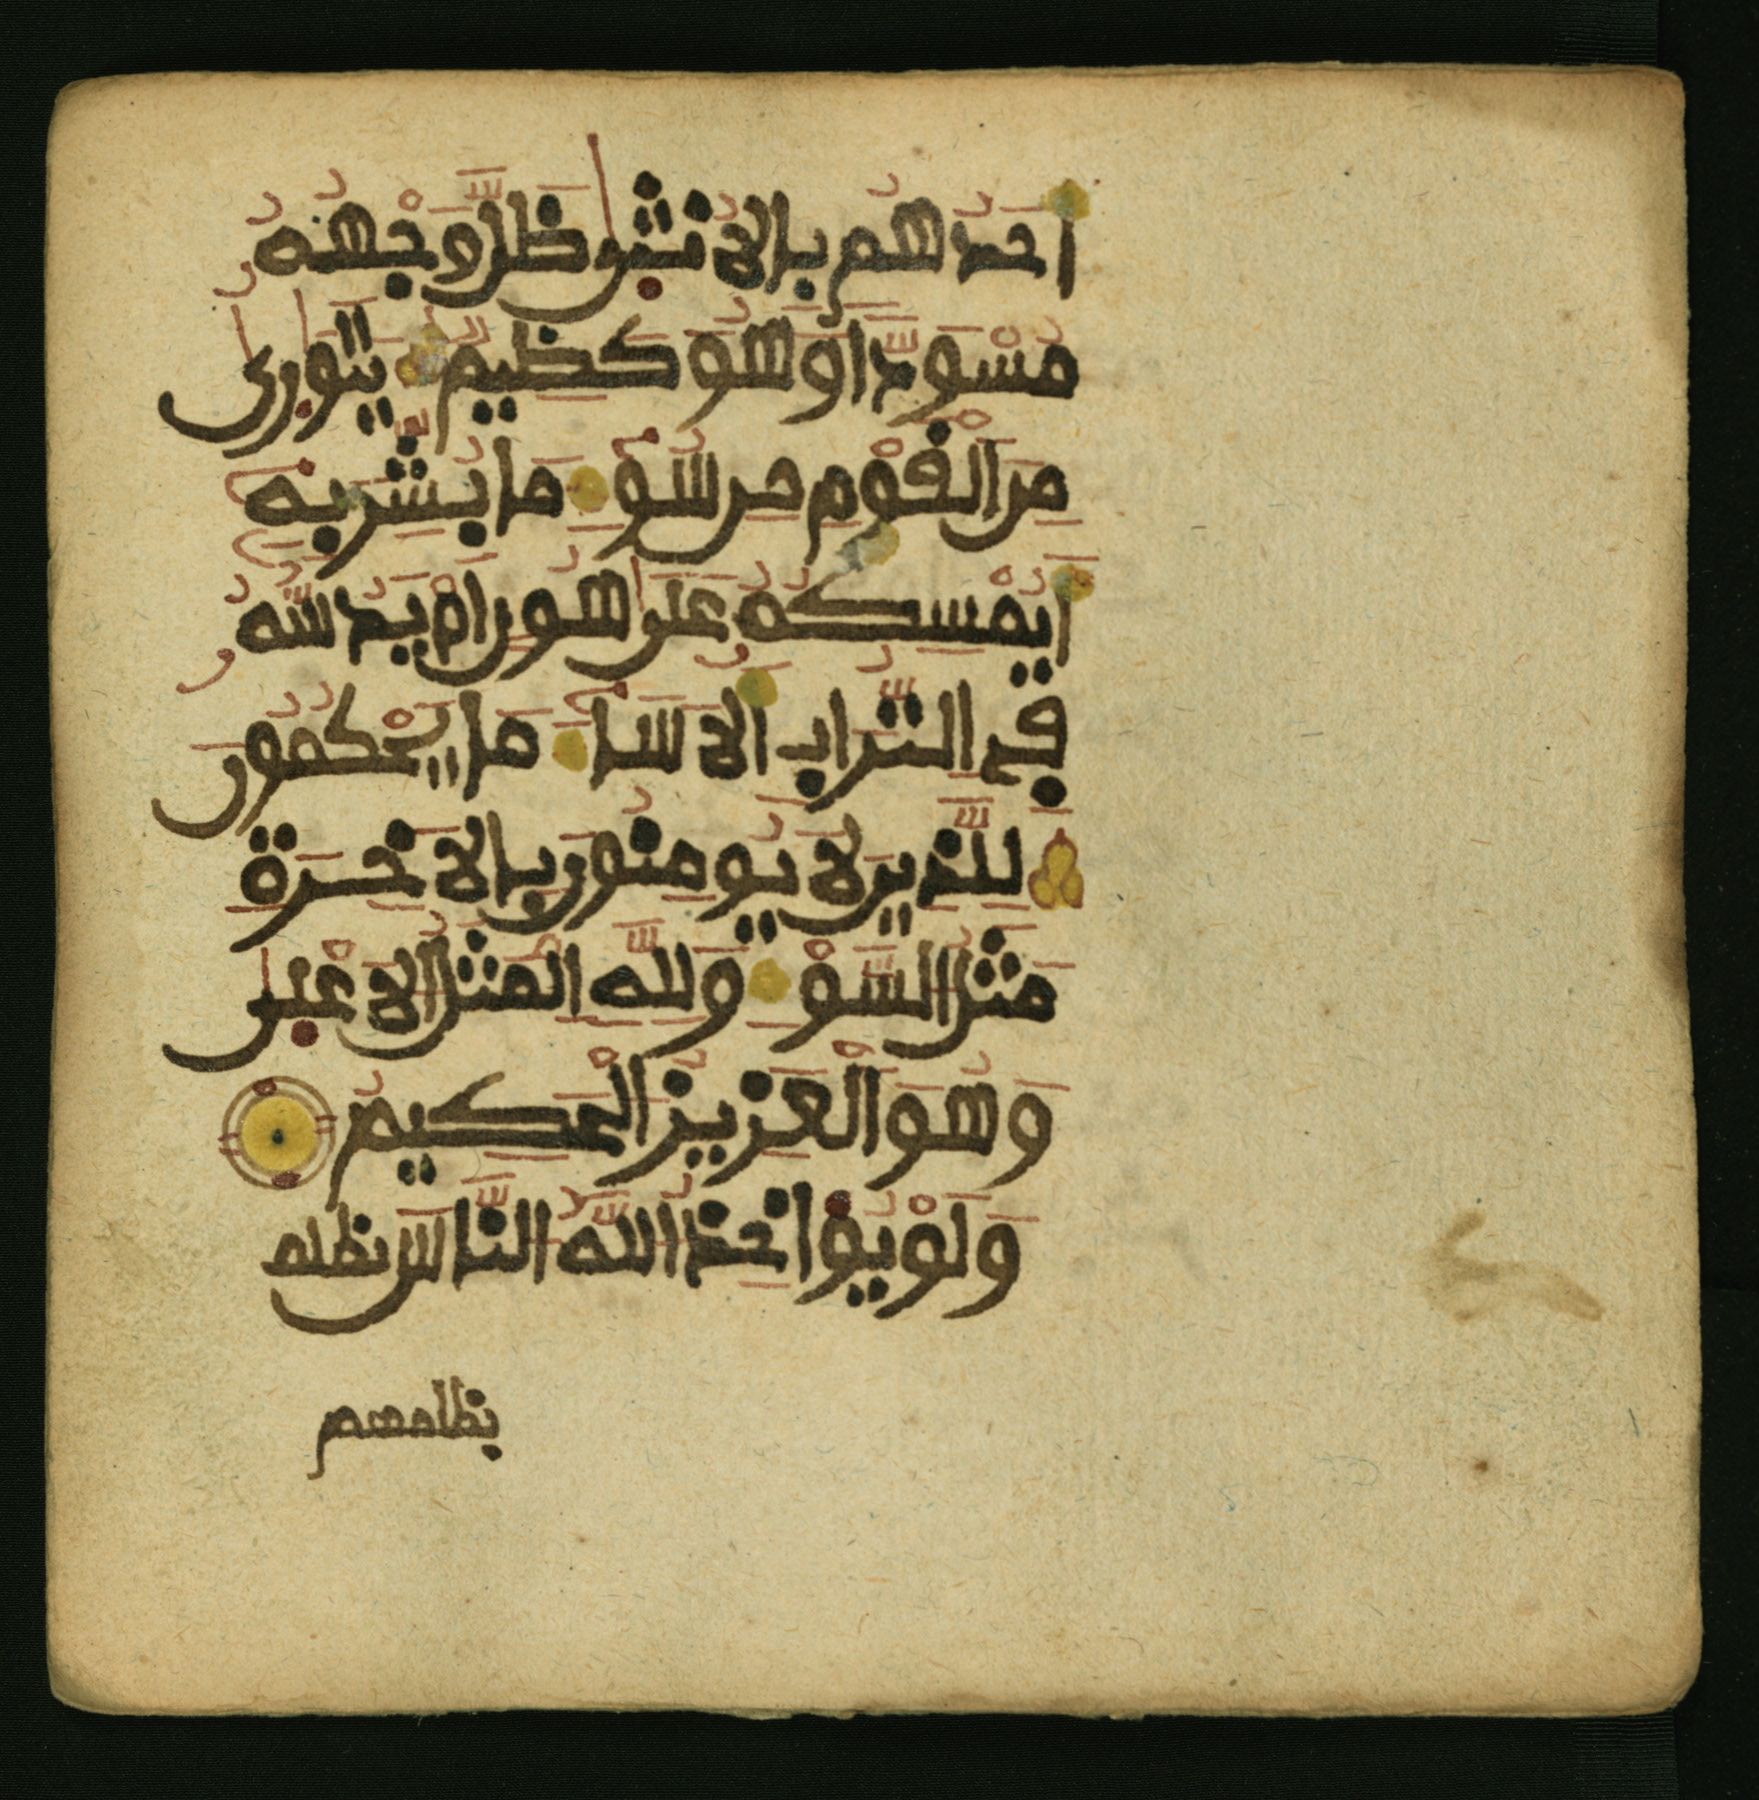 احدهم بالانثى ظل وجهه
مسودا وهو كظيم يتورى
من القوم من سو ما بشر به
ايمسكه على هون ام يدسه
في التراب الا سا ما يحكمون
للذين لا يومنون بالاخرة
مثل السو ولله المثل الاعلى
وهو العزيز الحكيم
ولو يواخذ الله الناس بظلم
بظلمهم